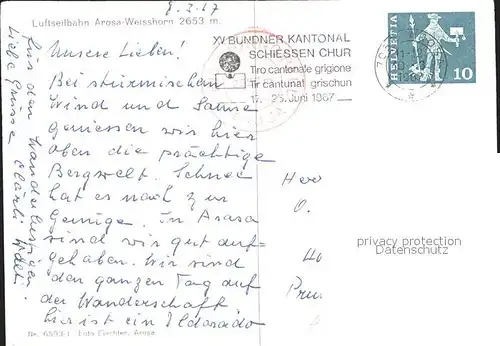 8.2.67
Luftseilbahn Arosa-Weisshorn 2653 m.
XV BÜNDNER KANTONAL
SCHIESSEN CHUR
Tiro cantonale grigione
Tir cantunal grischun
17. 25. Juni 1967
HELVETIA
10
Unsere Lieben!
Bei stürmischem
Wind und Sonne
geniessen wir hier
oben die prächtige
Bergwelt. Schnee
hat es noch zur
Genüge. In Arosa
sind wir gut auf-
gehoben. Wir sind
den ganzen Tag auf
der Wanderschaft.
hier ist ein Eldorado
für den Wanderlustigen.
Liebe Grüsse
Her
O.
Pru
privacy protection
Datenschutz
Arosa